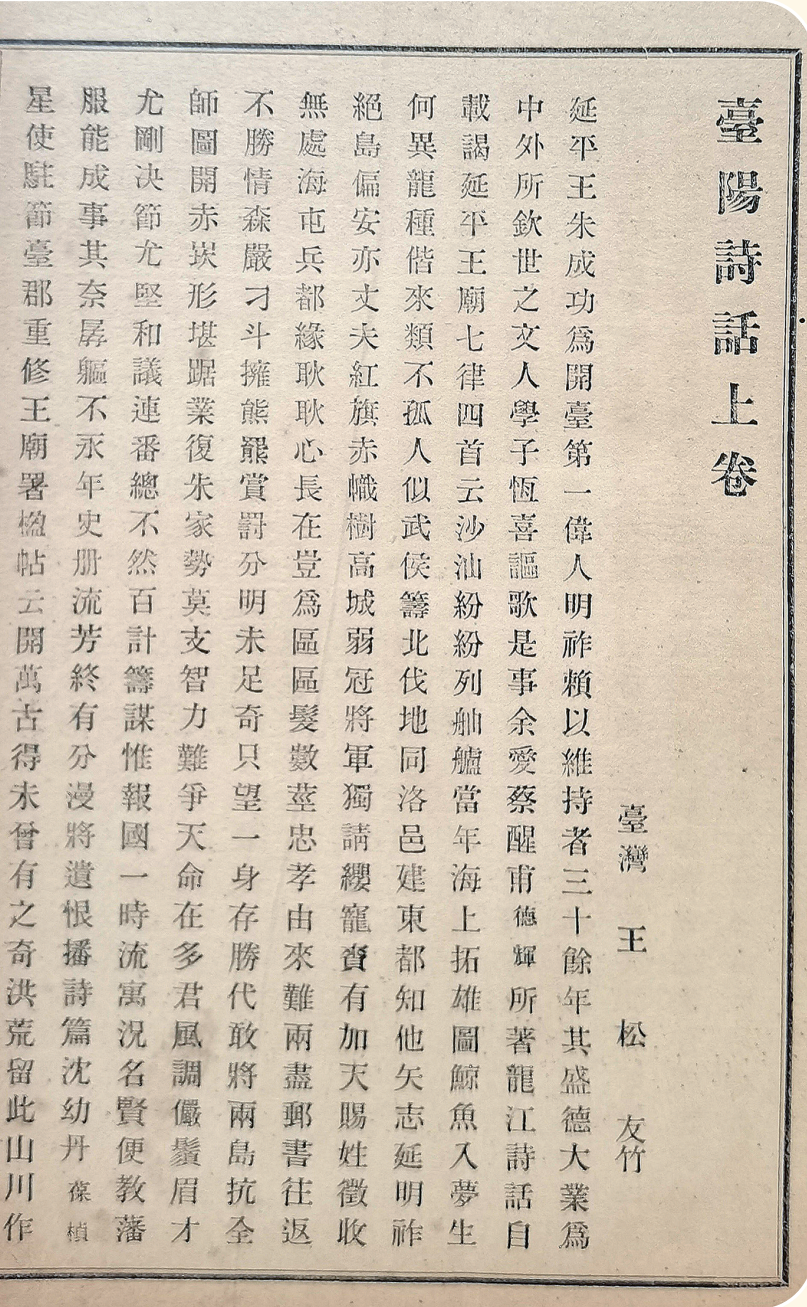 臺陽詩話上卷
臺灣 王 松 友竹
延平王朱成功爲開臺第一偉人明祚賴以維持者三十餘年其盛德大業爲
中外所欽世之文人學子恆喜謳歌是事余愛蔡醒甫德輝所著龍江詩話自
載謁延平王廟七律四首云沙汕紛紛列舳艫當年海上拓雄圖鯨魚入夢生
何異龍種偕來類不孤人似武侯籌北伐地同洛邑建東都知他矢志延明祚
絕島偏安亦丈夫紅旗赤幟樹高城弱冠將軍獨請纓寵賚有加天賜姓徵收
無處海屯兵都緣耿耿心長在豈爲區區髮數莖忠孝由來難兩盡郵書往返
不勝情森嚴刁斗擁熊羆賞罸分明未足奇只望一身存勝代敢將兩島抗全
師圖開赤崁形堪踞業復朱家勢莫支智力難爭天命在多君風調儼鬚眉才
尤剛決節尤堅和議連番總不然百計籌謀惟報國一時流寓況名賢便教藩
服能成事其奈孱軀不永年史册流芳終有分漫將遺恨播詩篇沈幼丹葆楨
星使駐節臺郡重修王廟署楹帖云開萬古得未曾有之奇洪荒留此山川作